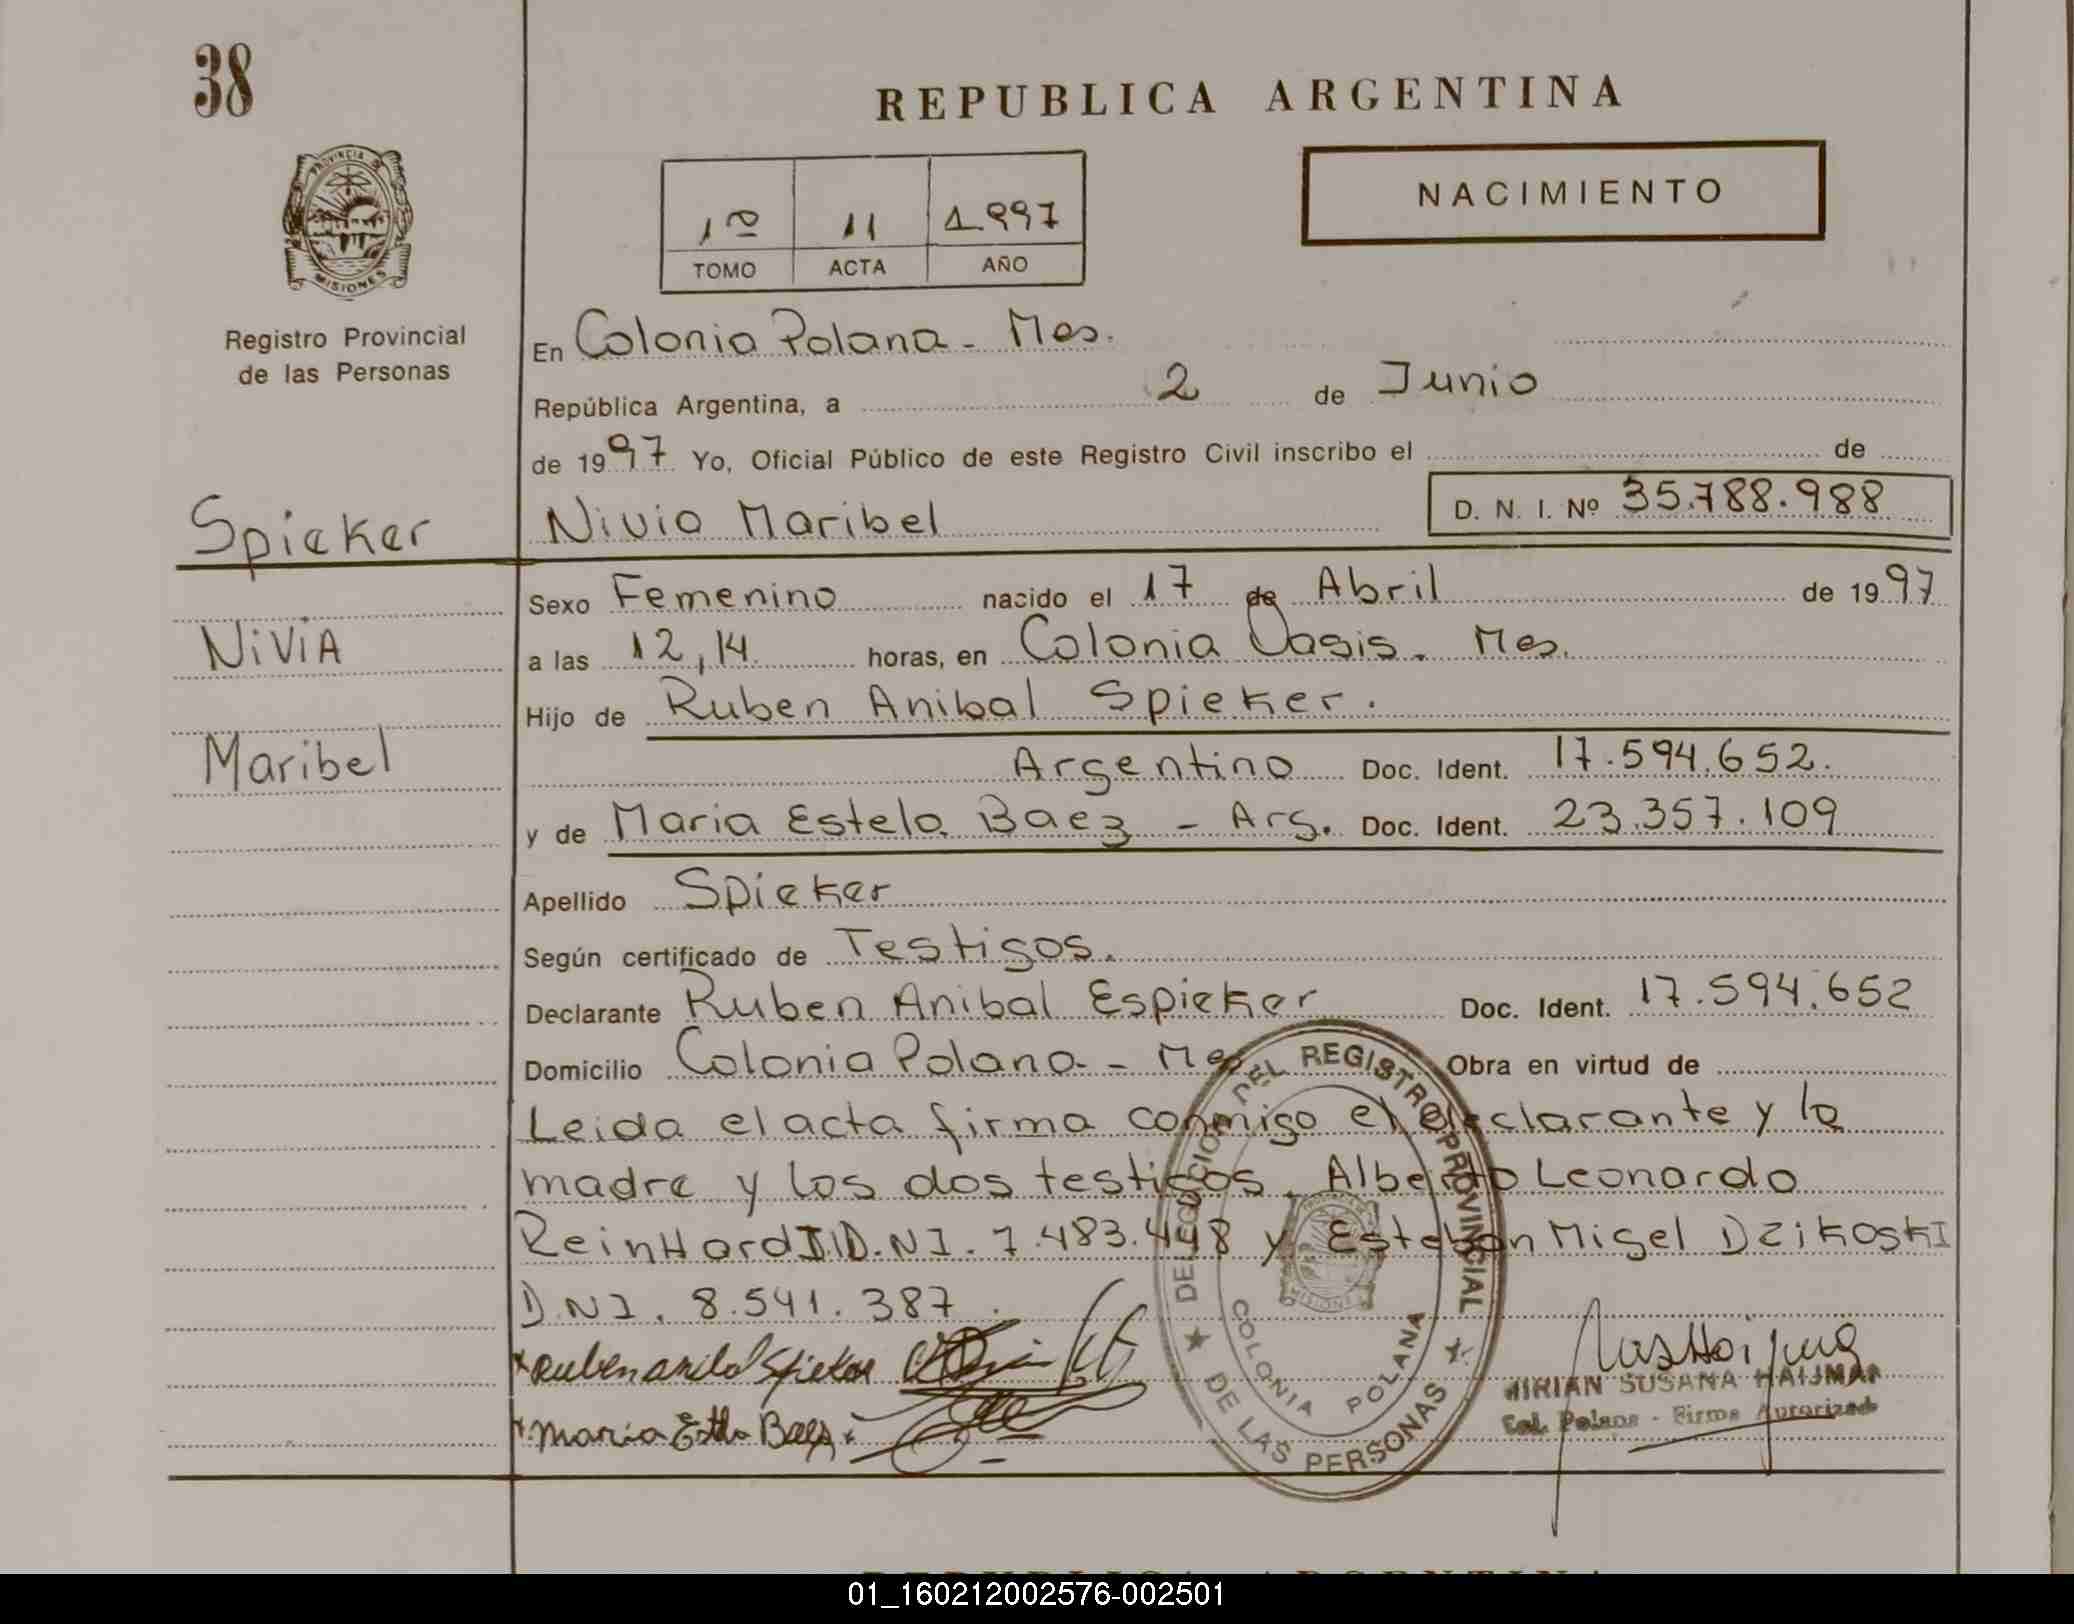 38
REPUBLICA ARGENTINA
PROVINCIA DE
MISIONES
NACIMIENTO
1º 11 1997
TOMO ACTA AÑO
Registro Provincial
de las Personas
En Colonia Polana - Mes.
República Argentina, a 2 de Junio
de 1997 Yo, Oficial Público de este Registro Civil inscribo el de
Spieker Nivia Maribel D. N. I. Nº 35.788.988
Sexo Femenino nacido el 17 de Abril de 1997
NiViA
a las 12,14 horas, en Colonia Oasis. Mes.
Hijo de Ruben Anibal Spieker.
Maribel
Argentino Doc. Ident. 17.594.652.
y de Maria Estela Baez - Arg. Doc. Ident. 23.357.109
Apellido Spieker
Según certificado de Testigos.
Declarante Ruben Anibal Espieker Doc. Ident. 17.594.652
Domicilio Colonia Polana - Mes Obra en virtud de
Leida el acta firma conmigo el declarante y la
madre y los dos testigos. Alberto Leonardo
ReinHardt D.NI. 7.483.448 y Esteban Migel Dzikoski
D.NI. 8.541.387.
DELEGACION DEL REGISTRO PROVINCIAL
DE LAS PERSONAS
COLONIA POLANA
MISIONES
Ruben anibal Spieker
Maria Estela Baez
MIRIAN SUSANA HAIJMAN
Col. Polana - Firma Autorizada
REPUBLICA ARGENTINA
01_160212002576-002501